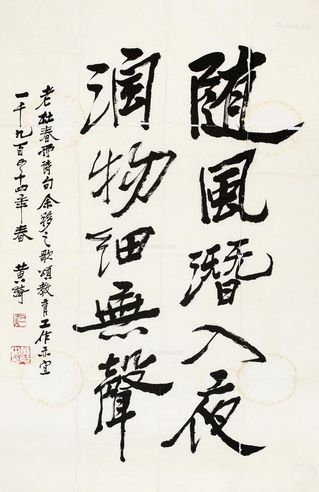 随風潛入夜
润物細無聲
老杜春雨詩句余移之歌頌教育工作亦宜
一千九百八十四年春 黄綺